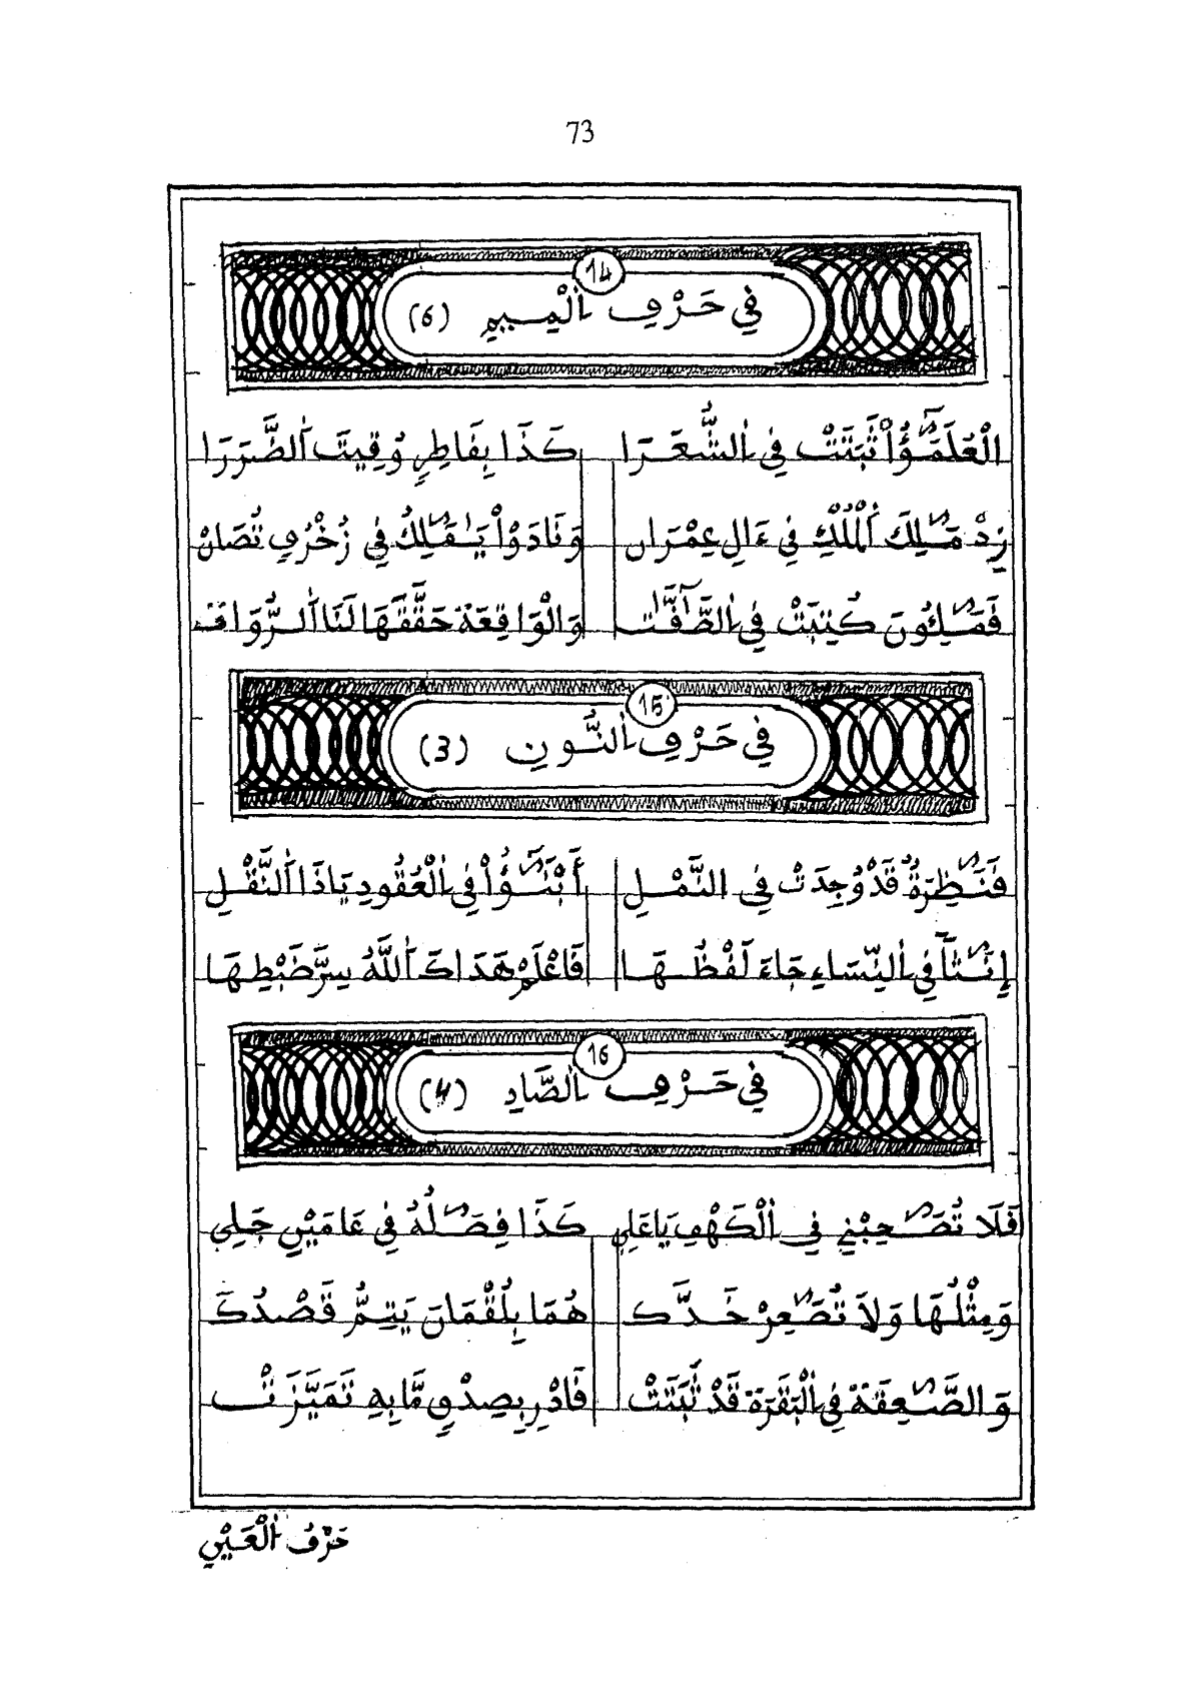 73
14
فِي حَرْفِ اْلْمِيمِ (6)
الْعُلَمَٰٓؤُاْ ثَبَتَتْ فِي اْلشُّعَرَا كَذَا بِفَاطِرٍ وُقِيتَ اَلضَّرَرَا
زِدْ مَٰلِكَ اَلْمُلْكِ فِي ءَالِ عِمْرَان وَنَادَوْاْ يَٰمَٰلِكُ فِي زُخْرُفِ تُصَانْ
فَمَٰلِـُٔونَ كُتِبَتْ فِي اْلصَّٰٓفَّٰت وَالْوَاقِعَة حَقَّقَهَا لَنَا اَلرُّوَاة
15
فِي حَرْفِ اْلنُّونِ (3)
فَنَٰظِرَةٌ قَدْ وُجِدَتْ فِي النَّمْلِ أَبْنَٰٓؤُاْ فِي اْلْعُقُودِ يَاذَا اَلنَّقْلِ
إِنَٰثاً فِي اْلنِّسَاءِ جَاءَ لَفْظُهَا فَاعْلَمْ هَدَاكَ اَللَّهُ سِرَّ ضَبْطِهَا
16
فِي حَرْفِ اْلصَّادِ (4)
فَلَا تُصَٰحِبْنِي فِي اْلْكَهْفِ يَا عَلِي كَذَا فِصَٰلُهُ فِي عَامَيْنِ جَلِي
وَمِثْلُهَا وَلَا تُصَٰعِرْ خَدَّك هُمَا بِلُقْمَانَ يَتِمُّ قَصْدُكَ
وَالصَّٰعِقَة فِي اْلْبَقَرَة قَدْ ثَبَتَتْ فَادْرِ بِصِدْقٍ مَّا بِهِ تَمَيَّزَتْ
حَرْفُ اْلْعَيْنِ